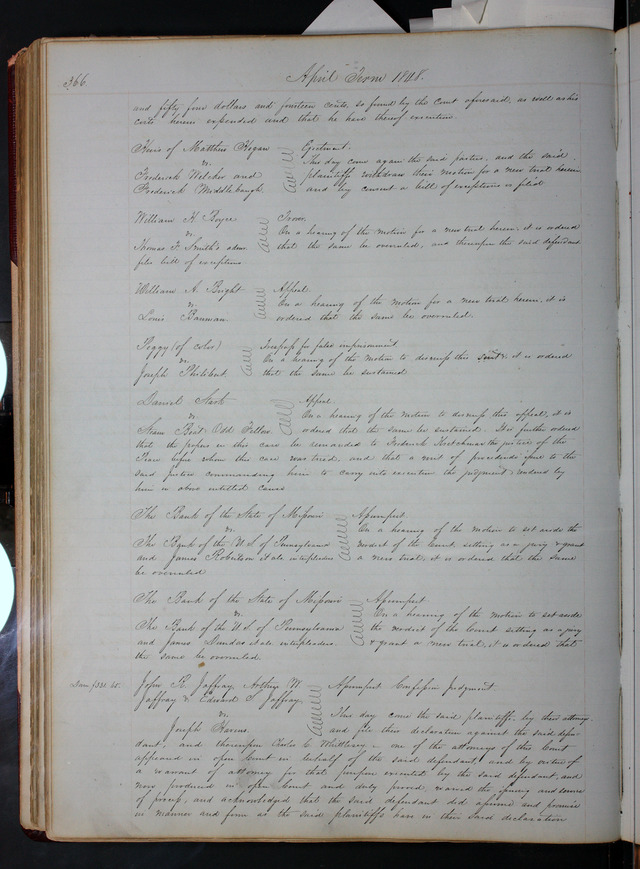 366
April Term 1848.
and fifty four dollars and fourteen cents, so found by the court aforesaid, as well as his
costs herein expended and that he have thereof execution.
Heirs of Matthew Kegan
vs.
Frederick Welcker and
Frederick Middlekaugh
Ejectment.
This day come again the said parties, and the said
plaintiffs withdraw their motion for a new trial herein
and by consent a bill of exceptions is filed
William H. Boyce
vs.
Thomas F. Smith's admr.
files bill of exceptions
Trover.
On a hearing of the motion for a new trial herein, it is ordered
that the same be overruled, and thereupon the said defendant
William A. Bright
vs.
Louis Bauman.
Appeal.
On a hearing of the motion for a new trial herein, it is
ordered that the same be overruled.
Peggy (of color)
vs.
Joseph Philibert
Trespass for false imprisonment
On a hearing of the motion to dismiss this suit, it is ordered
that the same be sustained
Daniel Stark
vs.
Steam Boat Odd Fellow
Appeal.
On a hearing of the motion to dismiss this appeal, it is
ordered that the same be sustained. It is further ordered
that the papers in this case be remanded to Frederick Kretschmar the justice of the
Peace before whom this case was tried, and that a writ of procedendo issue to the
said justice commanding him to carry into execution the judgment rendered by
him in above entitled cause
The Bank of the State of Missouri
vs.
The Bank of the U.S. of Pennsylvania
and James Robertson et als interpleaders
be overruled
Assumpsit.
On a hearing of the motion to set aside the
verdict of the Court, sitting as a jury & grant
a new trial, it is ordered that the same
The Bank of the State of Missouri
vs.
The Bank of the U.S. of Pennsylvania
and James Dundas et als interpleaders
the same be overruled.
Assumpsit
On a hearing of the motion to set aside
the verdict of the Court sitting as a jury
& grant a new trial, it is ordered that
John R. Jaffray, Arthur W.
Jaffray & Edward S. Jaffray,
vs.
Joseph
Assumpsit Confession Judgment
This day come the said plaintiffs, by their attorney
and file their declaration against the said defen-
dant, and thereupon Charles C. Whittlesey - one of the attorneys of this Court
appeared in open Court in behalf of the said defendant, and by virtue of
a warrant of attorney for that purpose executed by the said defendant, and
now produced in open Court and duly proved, waived the issuing and service
of process, and acknowledged that the said defendant did assume and promise
in manner and form as the said plaintiffs have in their said declaration